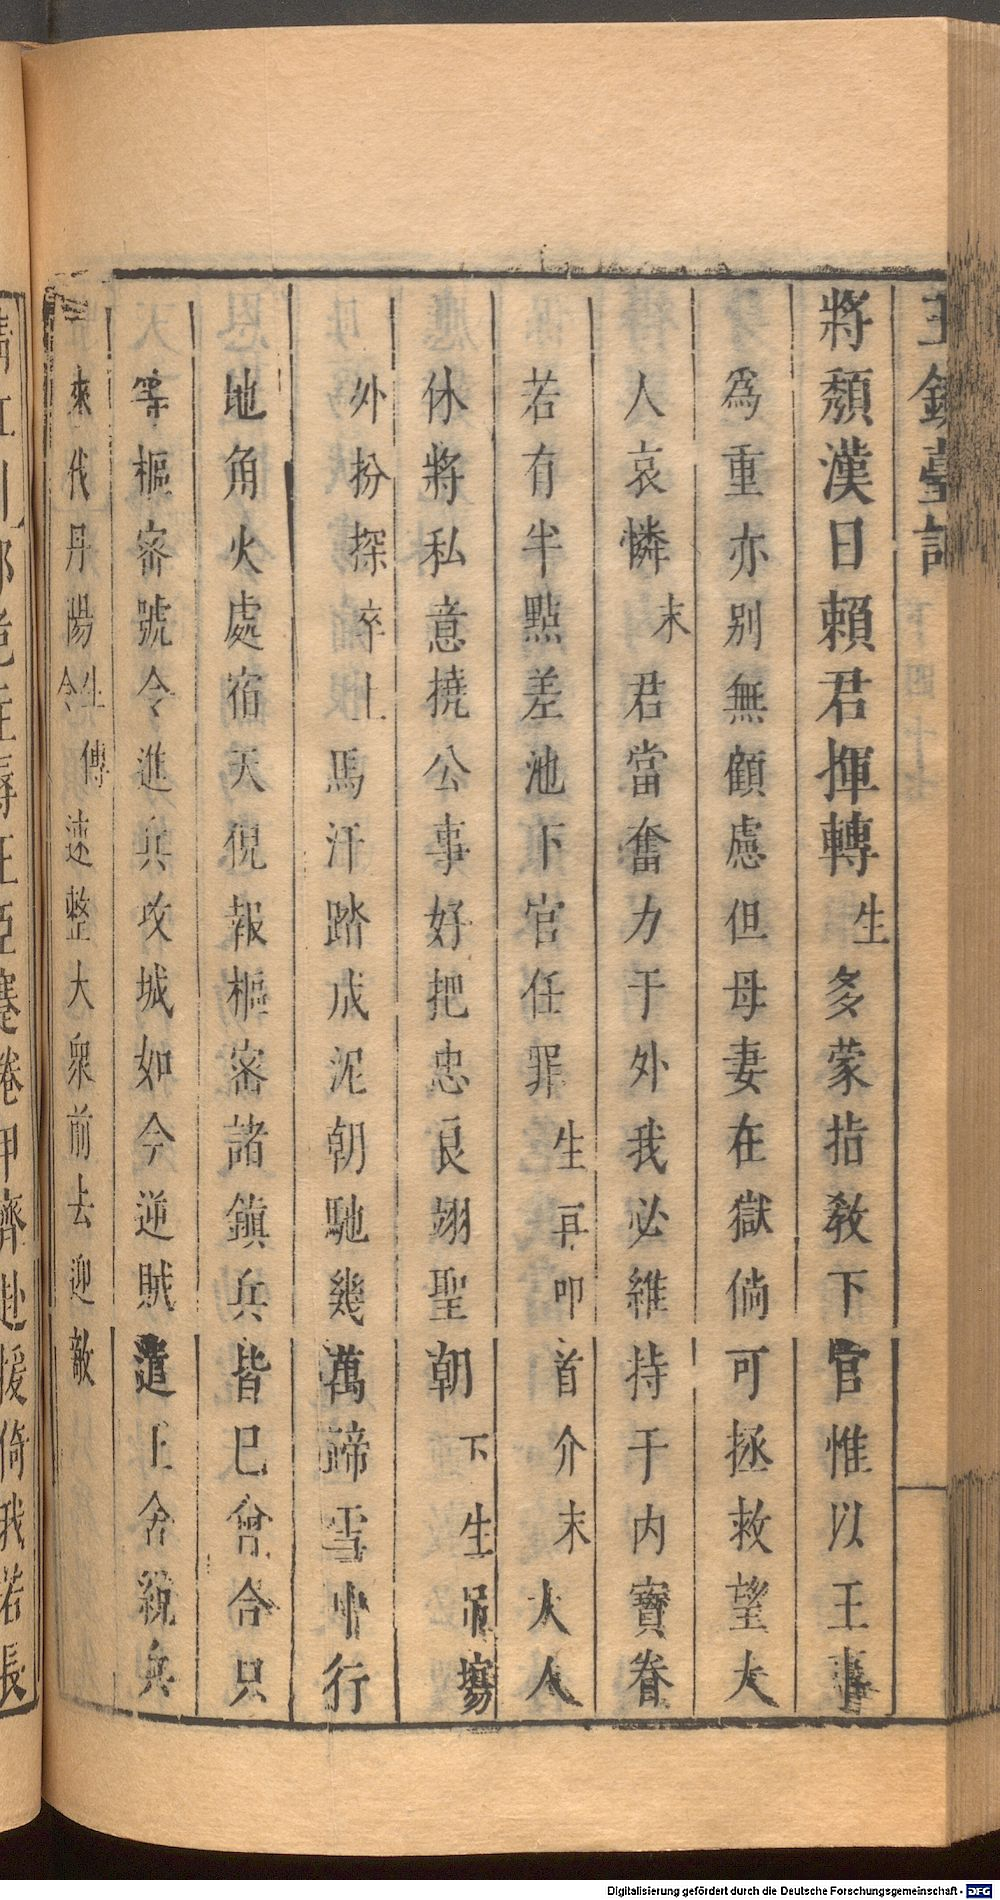 玉鏡臺記
將頹漢日賴君揮轉生多蒙指敎下官惟以王事
爲重亦別無顧慮但母妻在獄倘可拯救望大
人哀憐末君當奮力于外我必維持于內寶眷
若有半點差池下官任罪生再叩首介末大人
休將私意撓公事好把忠良翊聖朝下生吊場
外扮探卒上馬汗踏成泥朝馳幾萬蹄雪中行
地角火處宿天倪報樞密諸鎮兵皆已會合只
等樞密號令進兵攻城如今逆賊遣上舍統兵
來代丹陽令生傳速整大衆前去迎敵
Digitalisierung gefördert durch die Deutsche Forschungsgemeinschaft - DFG